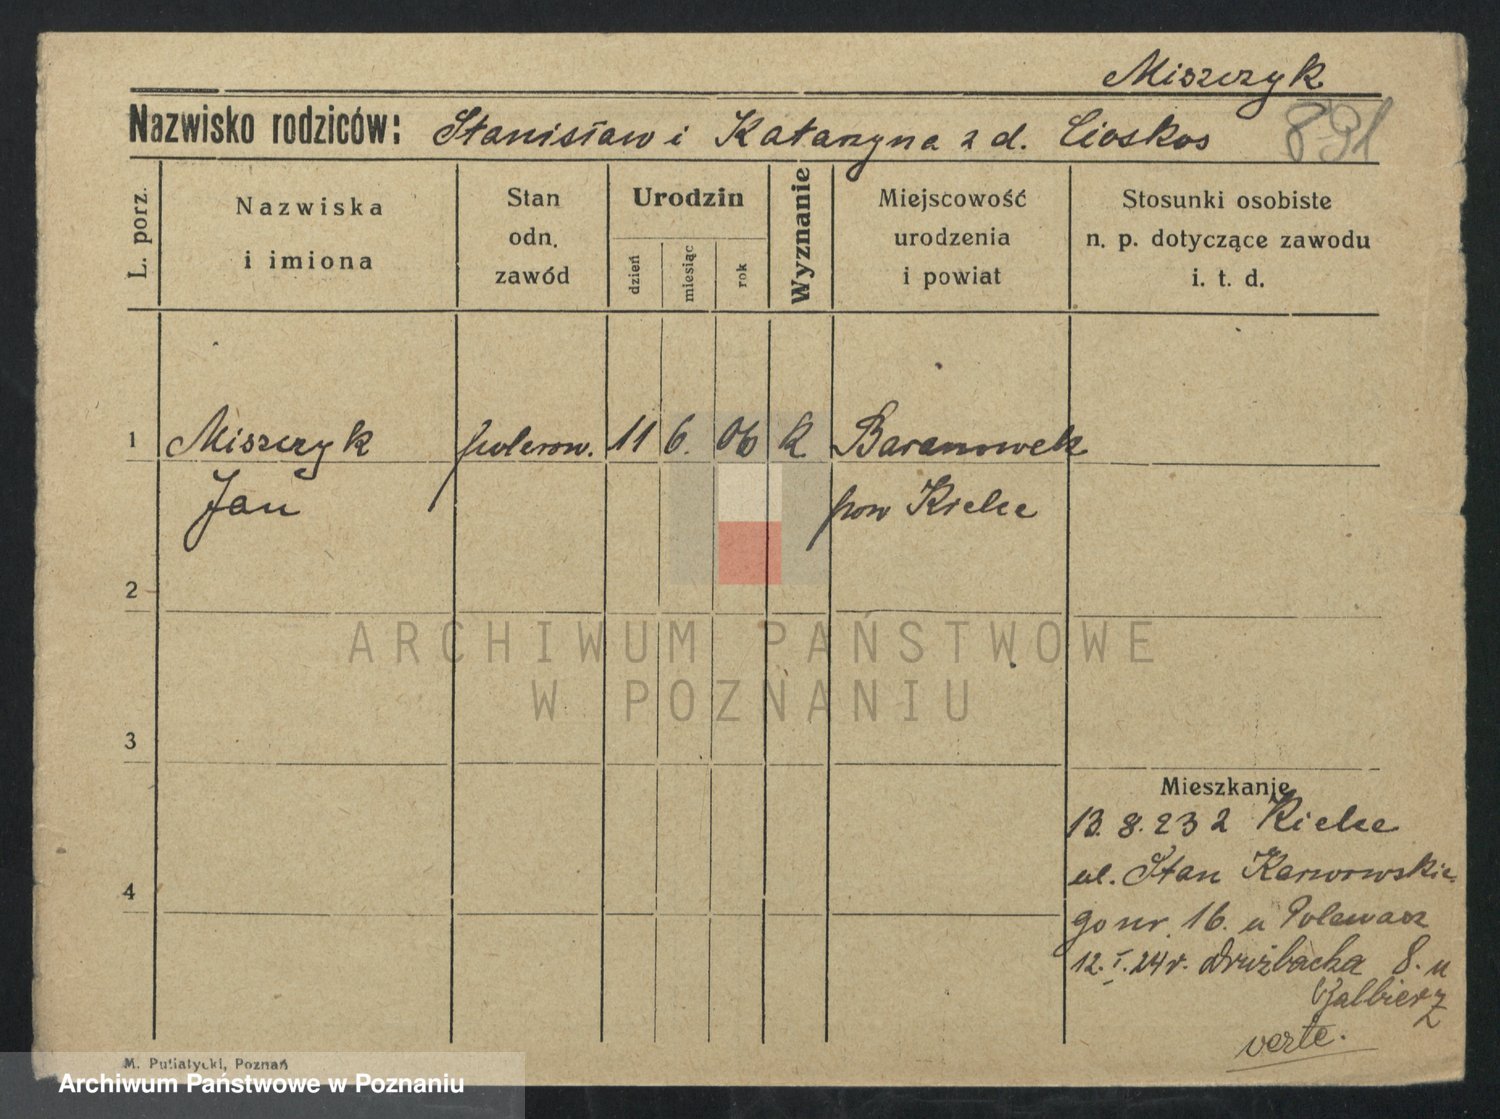 Miszczyk
Nazwisko rodziców: Stanisław i Katarzyna z d. Cioskos 891
L. porz.
Nazwiska
i imiona
Stan
odn.
zawód
Urodzin
dzień
miesiąc
rok
Wyznanie
Miejscowość
urodzenia
i powiat
Stosunki osobiste
n. p. dotyczące zawodu
i. t. d.
1 Miszczyk polerow. 11 6. 06 k. Baranowek
Jan pow Kielce
2
ARCHIWUM PAŃSTWOWE
W POZNANIU
3
Mieszkanie
13.8.23 z Kielce
4
ul. Stan Karwowskie-
go nr. 16. u Polewacz
12.I.24r. Drużbacka 8. u
Balbierz
verte.
M. Putiatycki, Poznań
Archiwum Państwowe w Poznaniu